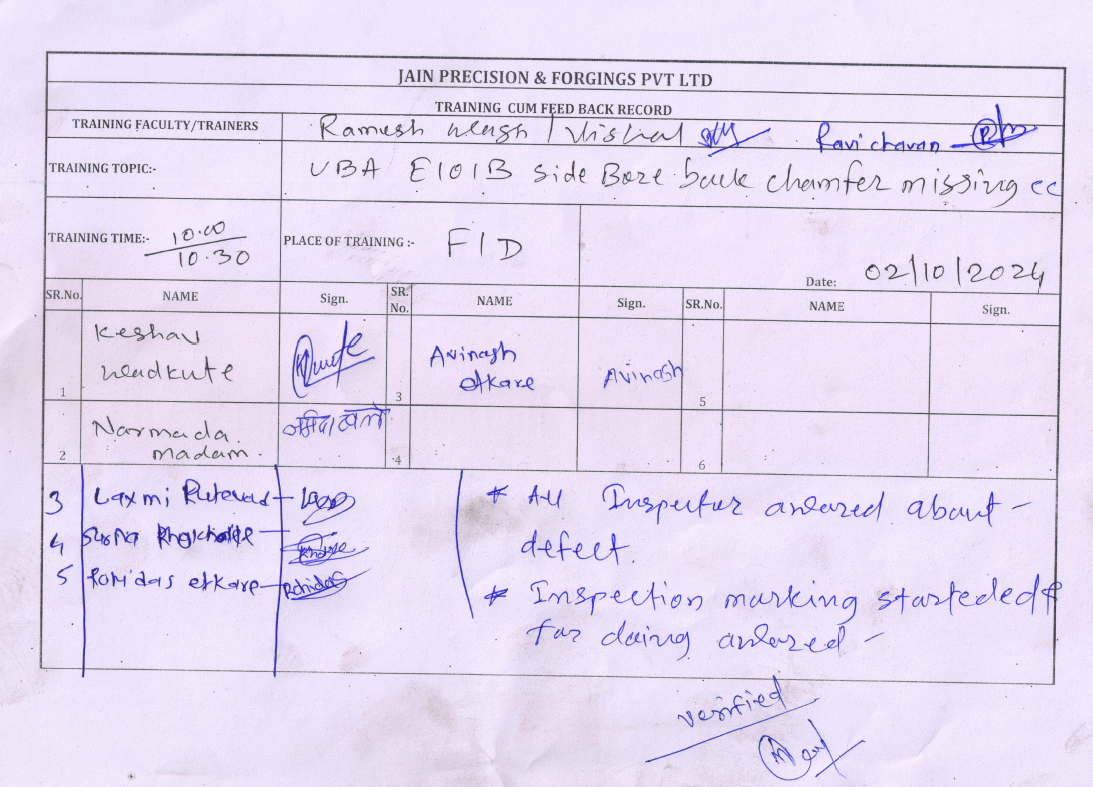 JAIN PRECISION & FORGINGS PVT LTD
TRAINING CUM FEED BACK RECORD
TRAINING FACULTY/TRAINERS Ramesh Wagh / Vishal Ravi chavan
TRAINING TOPIC:- UBA E101B side Boze back chamfer missing CC
TRAINING TIME:- 10.00
10.30
PLACE OF TRAINING :- FID
Date: 02/10/2024
SR.No. NAME Sign. SR. No. NAME Sign. SR.No. NAME Sign.
1 Keshav
3 Avinash etkare Avinash
5
2 Narmada madam.
4
6
3 Laxmi
4
5 Rohidas etkare Rohidas
* All Inspector about
defect.
* Inspection marking started
for doing
verified